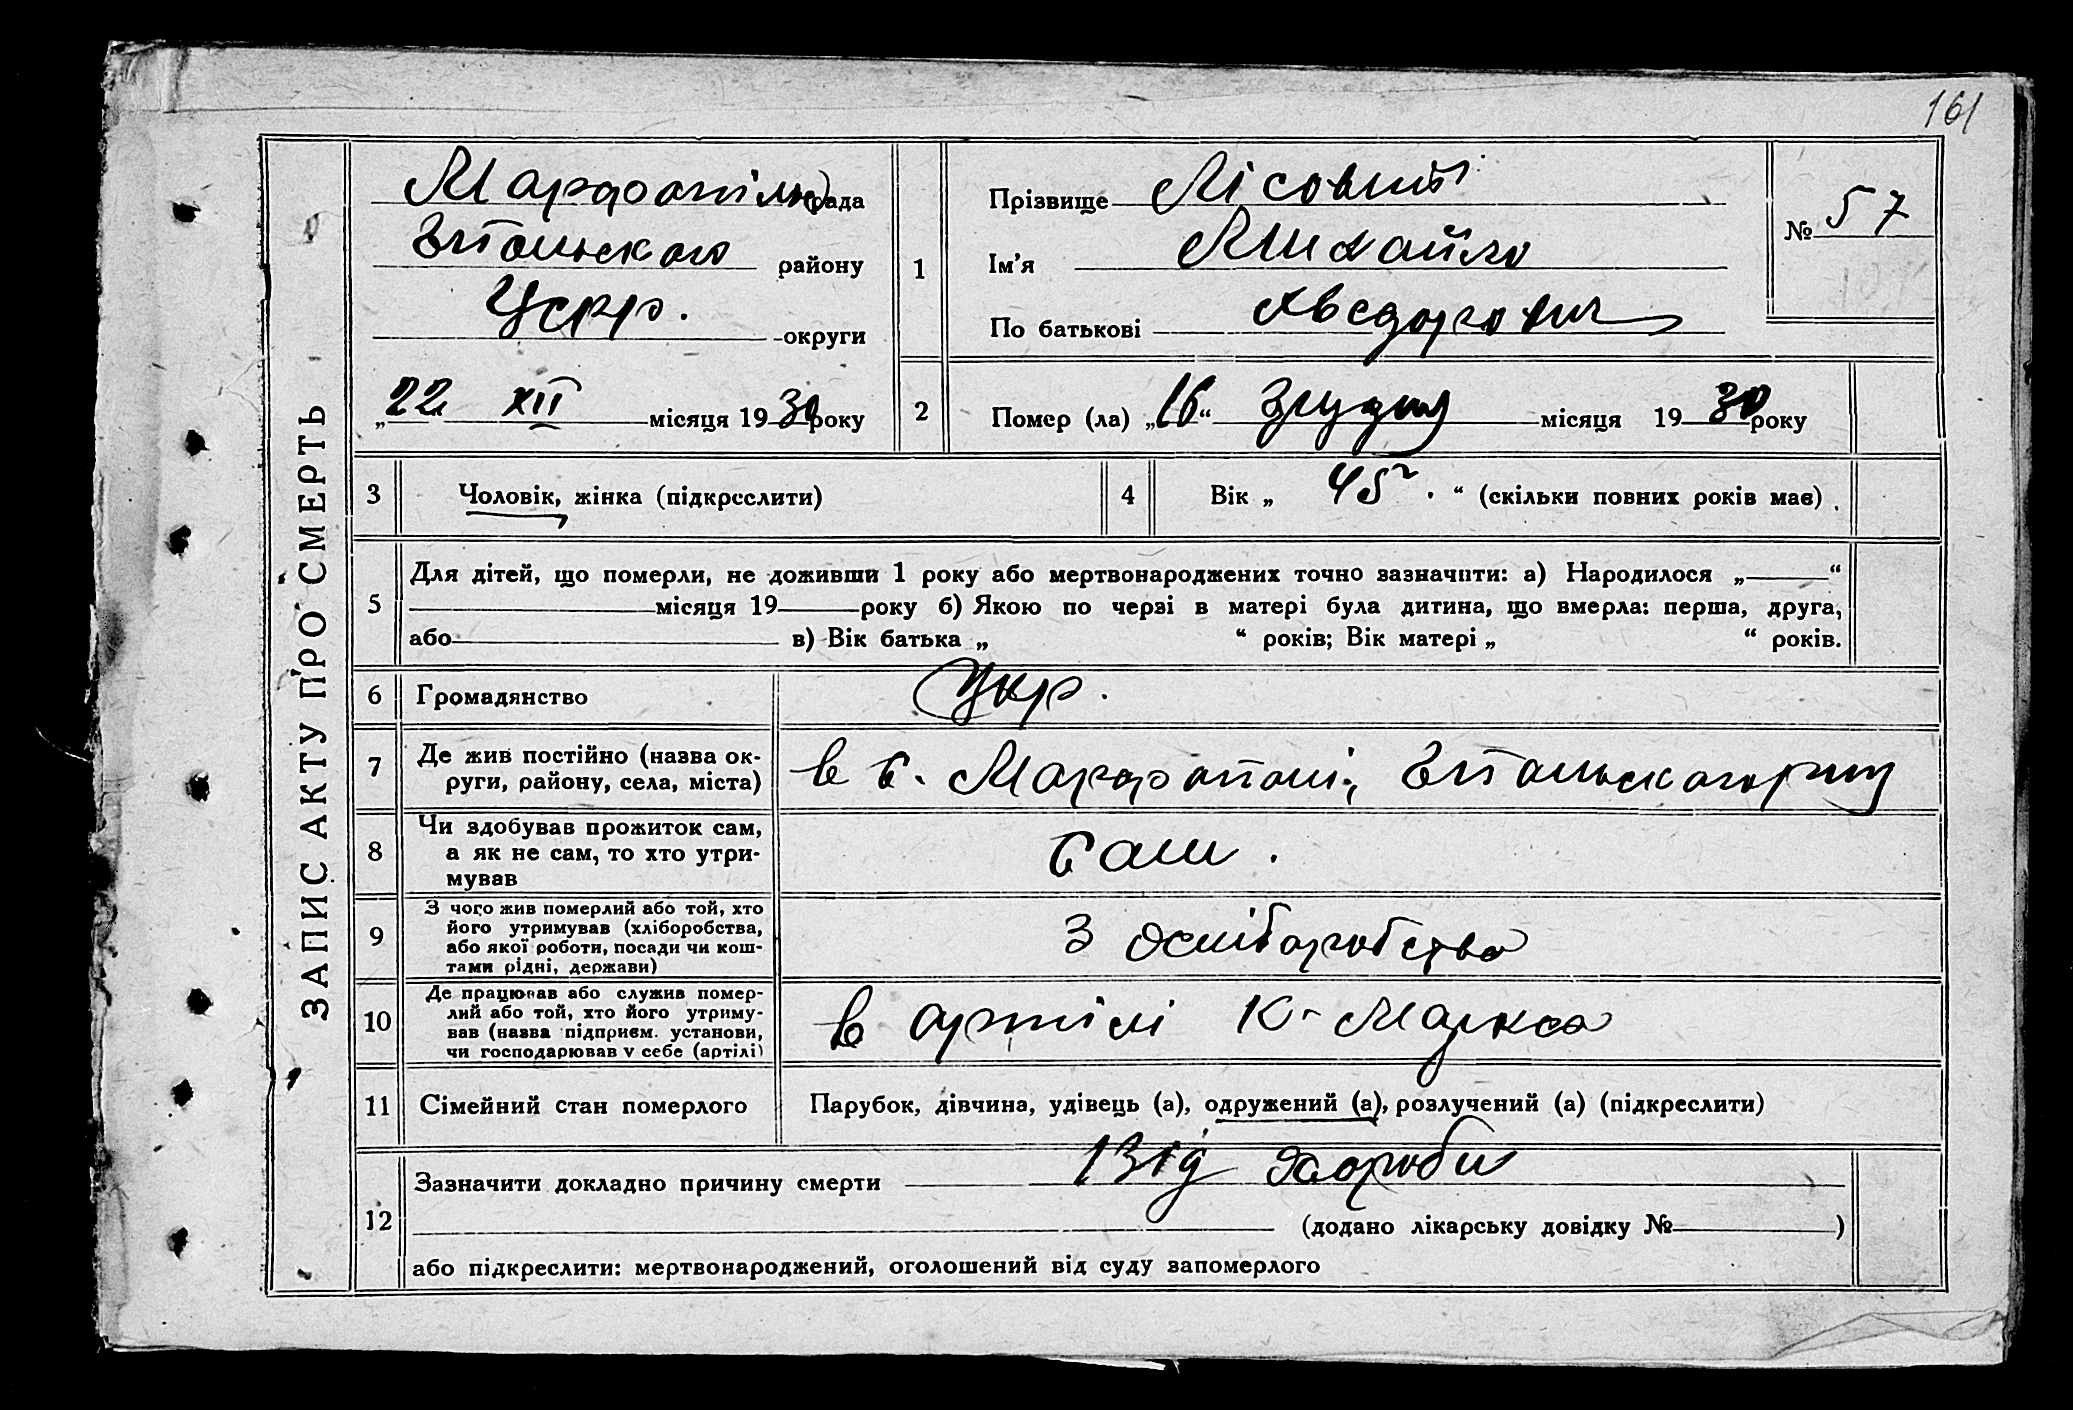 161
ЗАПИС АКТУ ПРО СМЕРТЬ
Марфопіль рада
району
УСРР. округи
„22 XII місяця 1930 року
1
Прізвище Лісовий
Ім'я Михайло
По батькові Хведорович
№ 57
2
Помер (ла) „16“ Грудня місяця 1930 року
3
Чоловік, жінка (підкреслити)
4
Вік „ 45 “ (скільки повних років має)
5
Для дітей, що померли, не доживши 1 року або мертвонароджених точно зазначити: а) Народилося „ “
місяця 19 року б) Якою по черзі в матері була дитина, що вмерла: перша, друга,
або в) Вік батька „ “ років; Вік матері „ “ років.
6
Громадянство
Укр.
7
Де жив постійно (назва ок-
руги, району, села, міста)
в с. Марфополі,
8
Чи здобував прожиток сам,
а як не сам, то хто утри-
мував
Сам.
9
З чого жив померлий або той, хто
його утримував (хліборобства,
або якої роботи, посади чи кош-
тами рідні, держави)
З хліборобства
10
Де працював або служив помер-
лий або той, хто його утриму-
вав (назва підприєм. установи,
чи господарював у себе (артілі)
в артілі К-Маркса
11
Сімейний стан померлого
Парубок, дівчина, удівець (а), одружений (а), розлучений (а) (підкреслити)
12
Зазначити докладно причину смерти Від хороби
(додано лікарську довідку № )
або підкреслити: мертвонароджений, оголошений від суду запомерлого